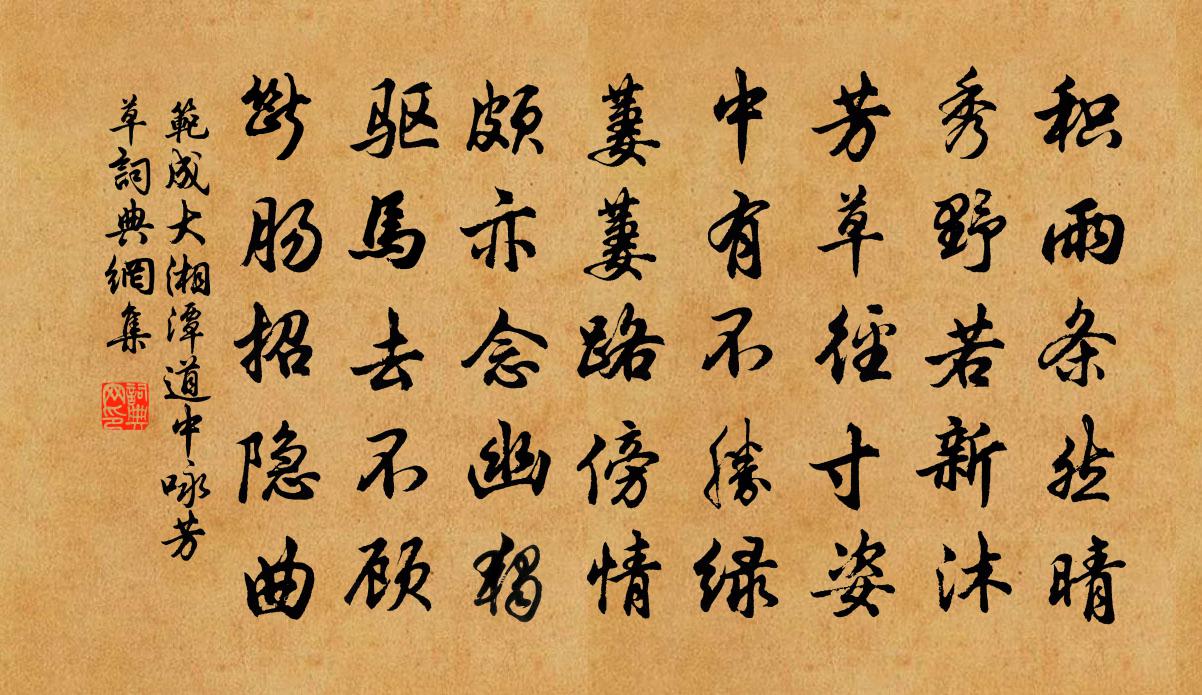 积雨条然晴
秀野若新沐
芳草徑寸姿
中有不勝绿
萋萋路傍情
颇亦念幽獨
驱馬去不顾
断肠招隐曲
範成大湘潭道中咏芳
草詞典網集
詞典
网印